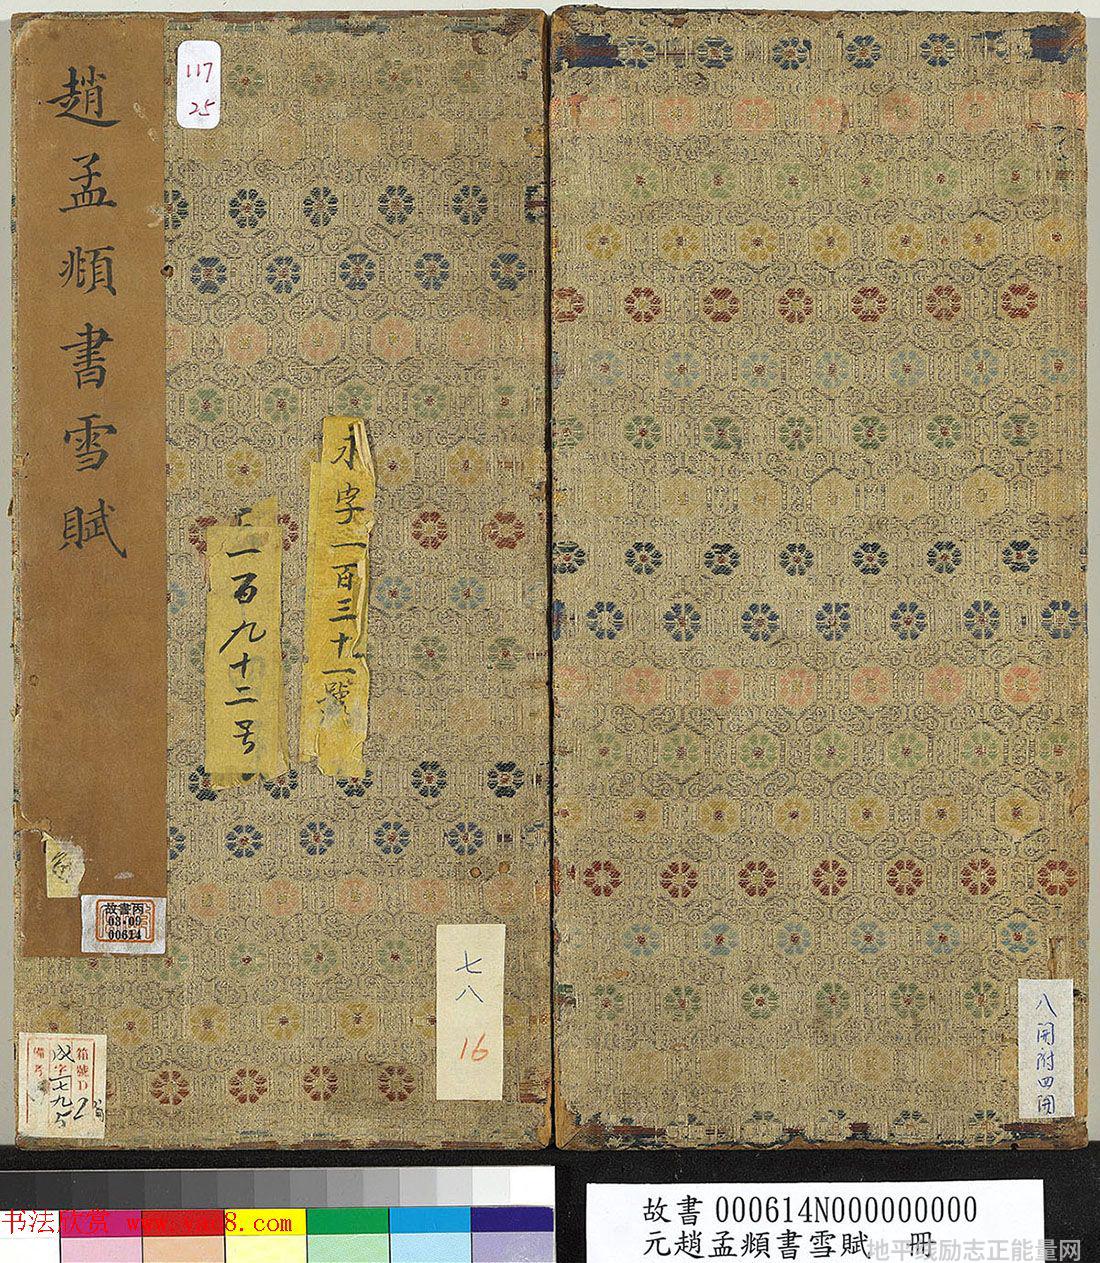 趙孟頫書雪賦
117
25
永字一百三十一號
一百九十二号
故書丙
03-09
00614
七八
16
箱號D
備考
八開附四開
故書 000614N000000000
元趙孟頫書雪賦 冊
书法欣赏 www.yac8.com
地平线励志正能量网